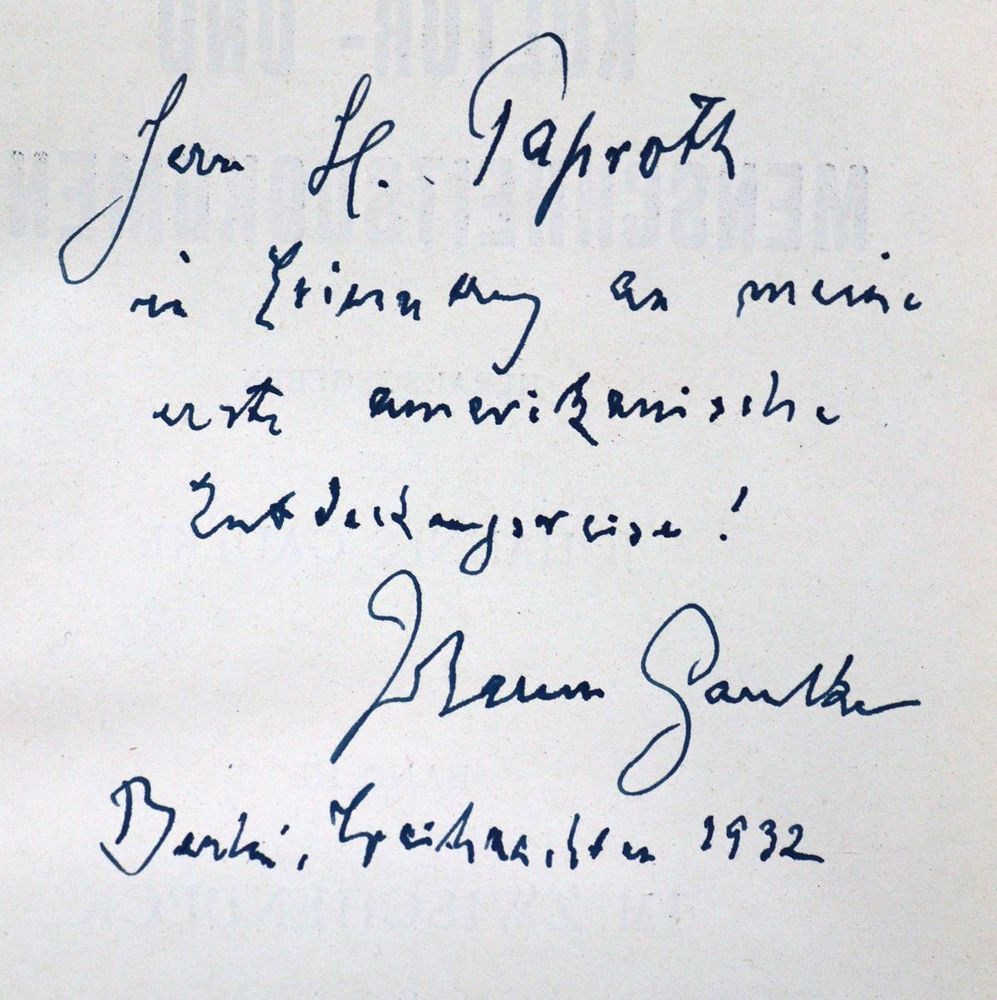 Herrn H. Paproth
in Erinnerung an meine
erste amerikanische
Entdeckungsreise!
Johannes Gaulke
Berlin, Weihnachten 1932